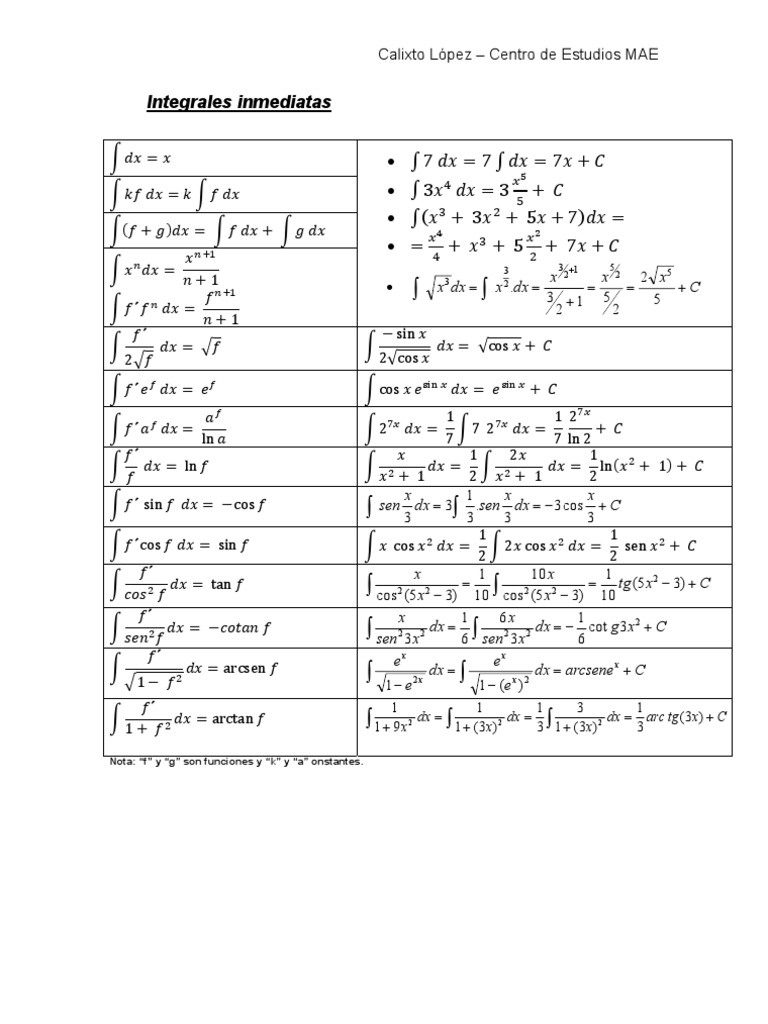 Calixto López – Centro de Estudios MAE
Integrales inmediatas
∫ dx = x
∫ kf dx = k ∫ f dx
∫ (f + g)dx = ∫ f dx + ∫ g dx
∫ xⁿdx = xⁿ⁺¹/(n + 1)
∫ f´fⁿ dx = fⁿ⁺¹/(n + 1)
• ∫ 7 dx = 7 ∫ dx = 7x + C
• ∫ 3x⁴ dx = 3 x⁵/5 + C
• ∫(x³ + 3x² + 5x + 7)dx =
• = x⁴/4 + x³ + 5 x²/2 + 7x + C
• ∫ √x³ dx = ∫ x^(3/2) .dx = x^(3/2+1)/(3/2 + 1) = x^(5/2)/(5/2) = 2√x⁵/5 + C
∫ f´/(2√f) dx = √f
∫ −sin x/(2√cos x) dx = √cos x + C
∫ f´e^f dx = e^f
∫ cos x e^(sin x) dx = e^(sin x) + C
∫ f´a^f dx = a^f/ln a
∫ 2^(7x) dx = 1/7 ∫ 7 2^(7x) dx = 1/7 2^(7x)/ln 2 + C
∫ f´/f dx = ln f
∫ x/(x² + 1) dx = 1/2 ∫ 2x/(x² + 1) dx = 1/2 ln(x² + 1) + C
∫ f´ sin f dx = −cos f
∫ sen x/3 dx = 3∫ 1/3 .sen x/3 dx = −3 cos x/3 + C
∫ f´cos f dx = sin f
∫ x cos x² dx = 1/2 ∫ 2x cos x² dx = 1/2 sen x² + C
∫ f´/cos² f dx = tan f
∫ x/cos²(5x² − 3) = 1/10 ∫ 10x/cos²(5x² − 3) = 1/10 tg(5x² − 3) + C
∫ f´/sen²f dx = −cotan f
∫ x/sen²3x² dx = 1/6 ∫ 6x/sen²3x² dx = − 1/6 cot g3x² + C
∫ f´/√(1 − f²) dx = arcsen f
∫ eˣ/√(1 − e²ˣ) dx = ∫ eˣ/√(1 − (eˣ)²) dx = arcseneˣ + C
∫ f´/(1 + f²) dx = arctan f
∫ 1/(1 + 9x²) dx = ∫ 1/(1 + (3x)²) dx = 1/3 ∫ 3/(1 + (3x)²) dx = 1/3 arc tg(3x) + C
Nota: “f” y “g” son funciones y “k” y “a” onstantes.